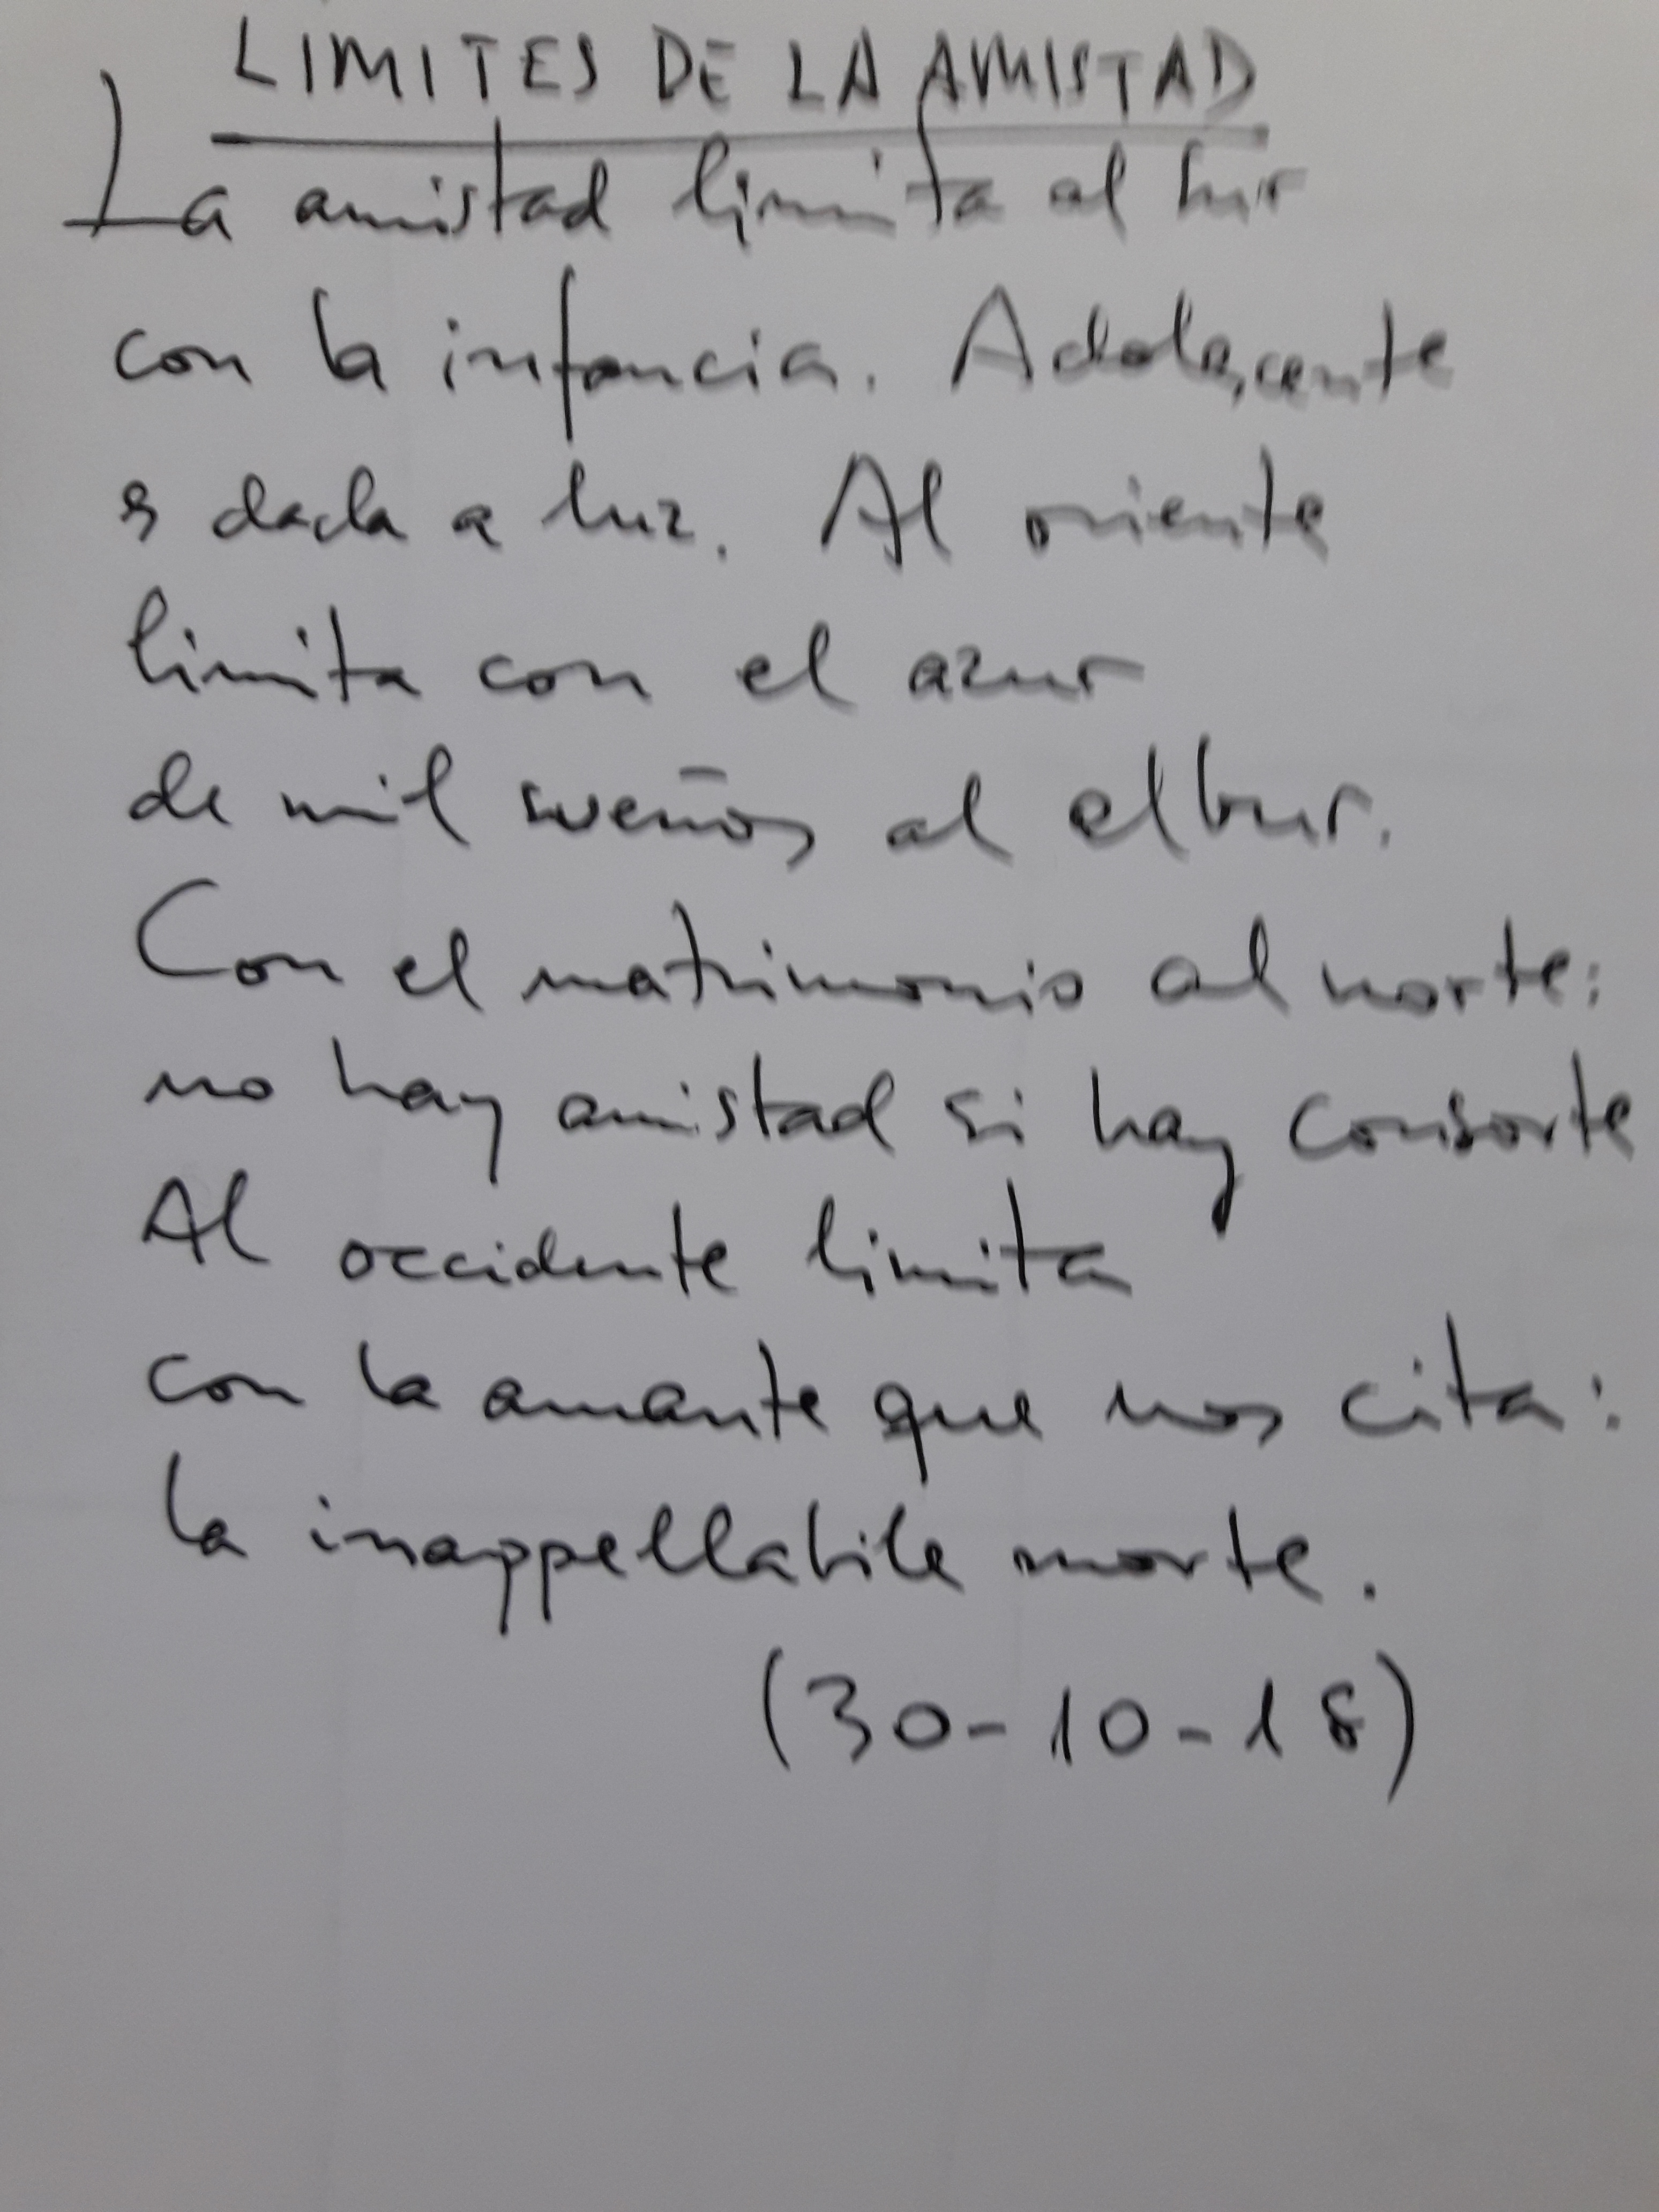 LIMITES DE LA AMISTAD
La amistad limita al sur
con la infancia. Adolescente
es dada a luz. Al oriente
limita con el azur
de mil sueños al albur.
Con el matrimonio al norte:
no hay amistad si hay consorte
Al occidente limita
con la amante que nos cita:
la inappellabile morte.
(30-10-18)